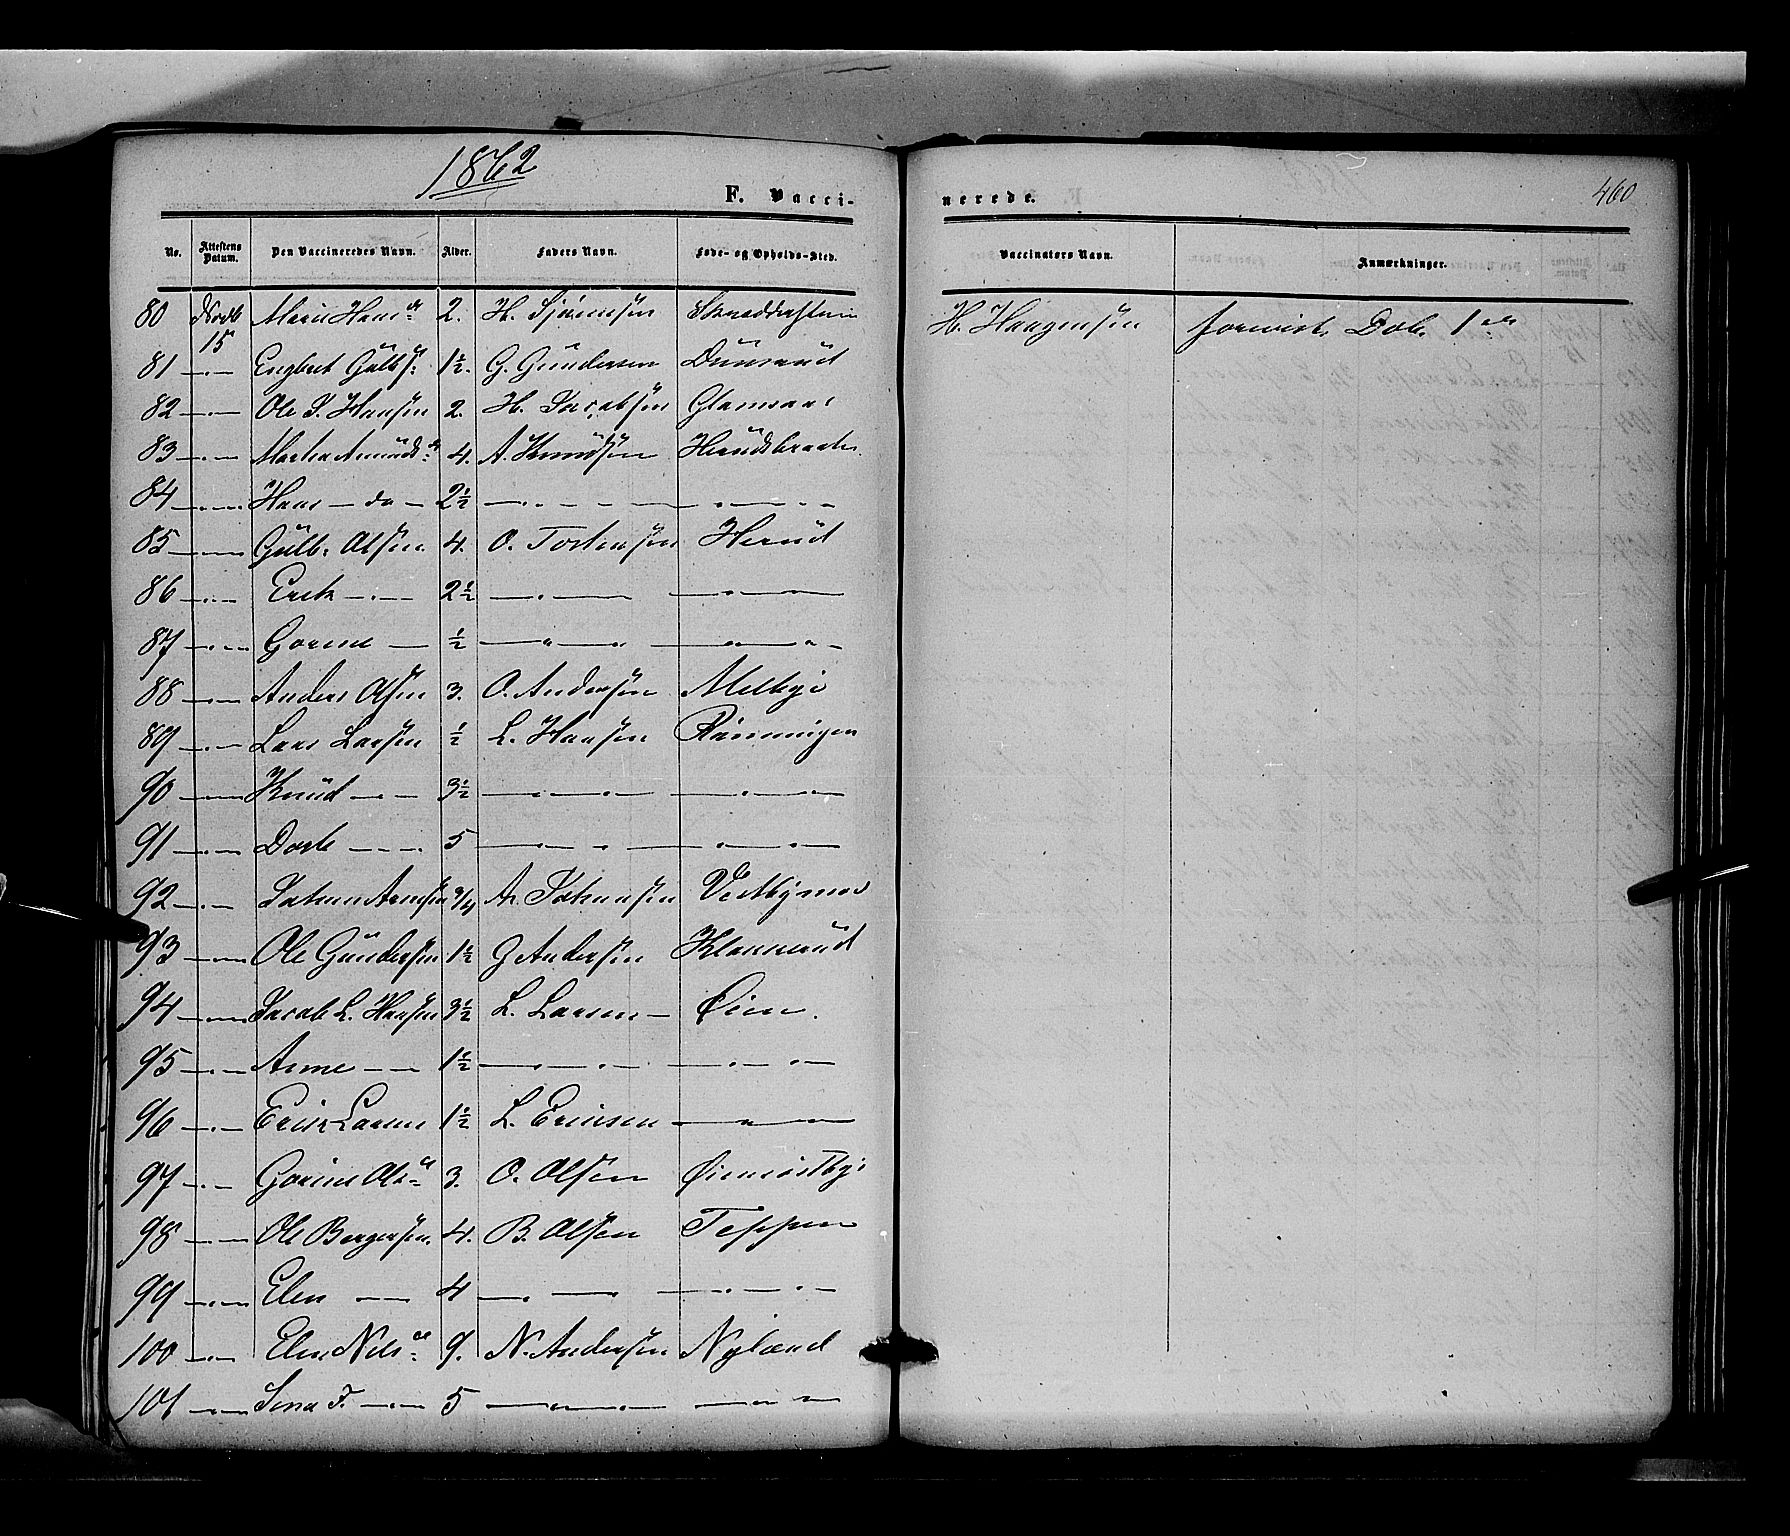 1862
F. Vacci-
nerede.
460
No. Attestens Datum. Den Vaccineredes Navn. Alder. Faders Navn. Føde- og Opholds-Sted. Vaccinatørs Navn. Anmærkninger.
80 Novb 15 Marie Hansdr 2. H. Sjørensen H. Haagensen
81 —.— Engbret Gulbs. 1½. G. Gundersen
82 —.— Ole J. Hansen 2. H. Jacobsen
83 —.— Marthe Amunds.dr 4. A. Knudsen
84 —.— Hans — do — 2½ —.—
85 —.— Gulb. Olsen 4. O. Tostensen Herud
86 —.— Erik —.— 2½ —.— —.—
87 —.— Gorine — ½ —.— —.—
88 —.— Anders Olsen 3. O. Andersen Melbye
89 —.— Lars Larsen ½ L. Hansen Rønningen
90 —.— Knud —.— 3½ —.— —.—
91 —.— Dorte —.— 5 —.— —.—
92 —.— Johan Arnesen ¾ A. Johansen
93 —.— Ole Gundersen 1½ G Andersen Klannerud
94 —.— Jacob L. Hansen 3½ L. Larsen — Øien.
95 —.— Arne —.— 1½ —.— —.—
96 —.— Erik Larsen 1½ L. Ericsen —.—
97 —.— Gorine Ols.dr 3. O. Olsen
98 —.— Ole Bergersen. 4. B. Olsen Teppen
99 —.— Elen —.— 4 —.— —.—
100 —.— Elen Nils.dr 9. N. Andersen Nyland
101 —.— 5 —.— —.—